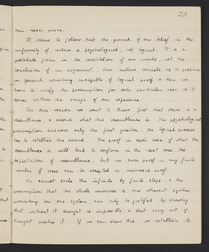 20
can never prove.
It seems to follow that the ground of our belief in the
uniformity of nature is psychological, not logical. It is a
postulate given in the constitution of our minds, not the
conclusion of an argument. Our nature compels us to presume
in general something incapable of logical proof, & then we
have to verify the presumption for each particular case as it
comes within the range of our experience.
In this reason we want to know first that there is a
resemblance & second what the resemblance is. The psychological
presumption answers only the first question, the logical process
has to establish the second. The proof in each case of what the
resemblance is will tend to confirm in the
of resemblance, but no such proof in any finite
number of cases can be accepted as universal proof.
We cannot scale the infinite by finite steps, & the
presumption that the whole universe is one coherent system
according to our system can only be justified by showing
that without it thought is impossible & that every act of
thought implies it. If we can show this we establish its